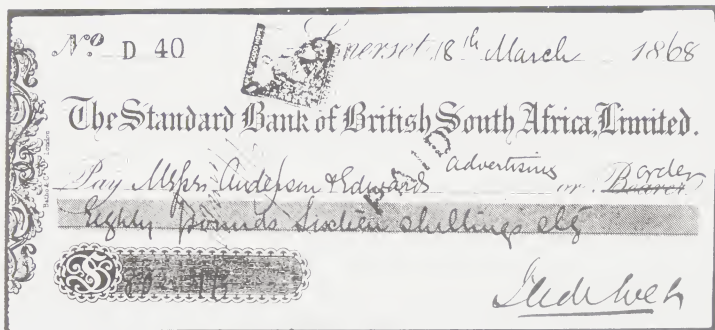 Nº D 40 Somerset 18th March 1868
The Standard Bank of British South Africa, Limited.
Pay Messrs Anderson & Edwards advertising or Bearer order
Eighty pounds Sixteen shillings
PAID
£